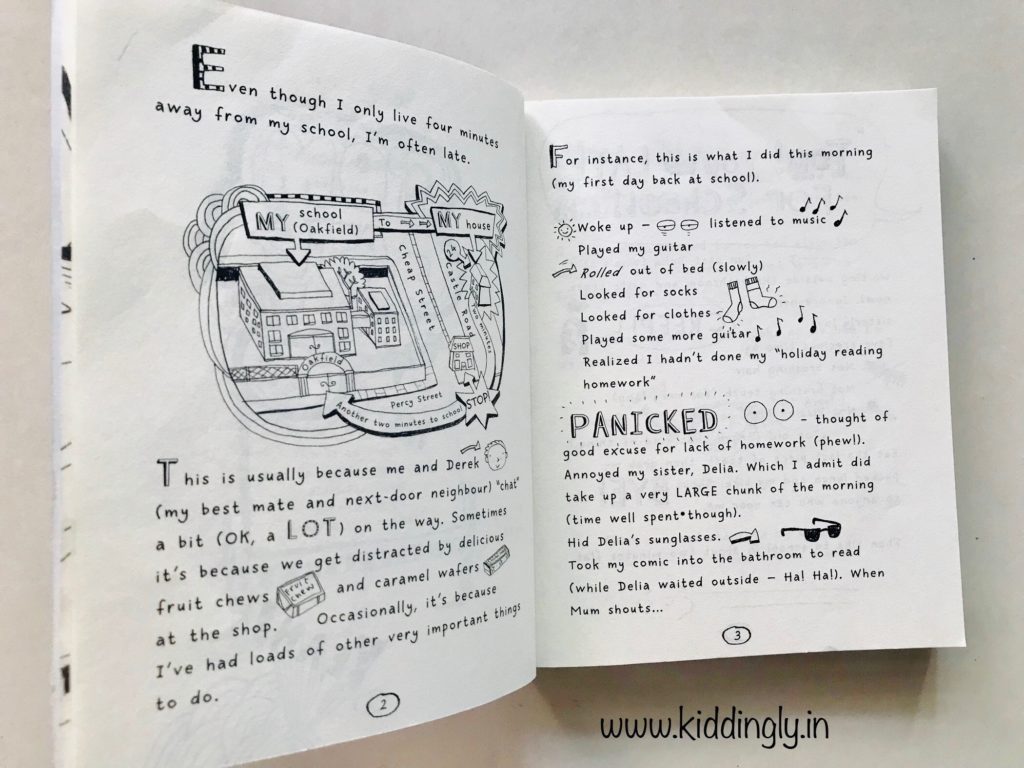 Even though I only live four minutes
away from my school, I'm often late.
MY school
(Oakfield)
To
MY house
Cheap Street
Castle Road
two minutes
SHOP
Oakfield
Percy Street
STOP
Another two minutes to school
This is usually because me and Derek
(my best mate and next-door neighbour) "chat"
a bit (OK, a LOT) on the way. Sometimes
it's because we get distracted by delicious
fruit chews
fruit chew
and caramel wafers
at the shop. Occasionally, it's because
I've had loads of other very important things
to do.
2
For instance, this is what I did this morning
(my first day back at school).
Woke up – listened to music
Played my guitar
Rolled out of bed (slowly)
Looked for socks
Looked for clothes
Played some more guitar
Realized I hadn't done my "holiday reading
homework"
PANICKED – thought of
good excuse for lack of homework (phew!).
Annoyed my sister, Delia. Which I admit did
take up a very LARGE chunk of the morning
(time well spent though).
Hid Delia's sunglasses.
Took my comic into the bathroom to read
(while Delia waited outside – Ha! Ha!). When
Mum shouts...
3
www.kiddingly.in